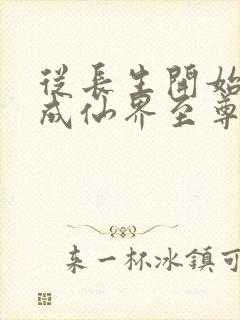 從長生開始
成仙界至尊
来一杯冰鎮可